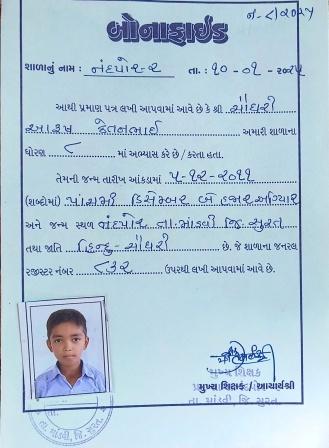 ન-૮/૨૦૨૫
બોનાફાઈડ
શાળાનું નામ : નંદપોર-૨ તા. : ૧૦-૦૧-૨૦૨૫
આથી પ્રમાણ પત્ર લખી આપવામાં આવે છે કે શ્રી ચૌધરી
આરૂષ કેતનભાઈ અમારી શાળાના
ધોરણ ૮ માં અભ્યાસ કરે છે / કરતા હતા.
તેમની જન્મ તારીખ આંકડામાં ૫-૧૨-૨૦૧૧
(શબ્દોમાં) પાંચમી ડિસેમ્બર બે હજાર અગિયાર
અને જન્મ સ્થળ નંદપોર તા-માંડવી જિ-સુરત
તથા જાતિ હિન્દુ-ચૌધરી છે. જે શાળાના જનરલ
રજીસ્ટર નંબર ૮૩૨ ઉપરથી લખી આપવામાં આવે છે.
મુખ્ય શિક્ષક
મુખ્ય શિક્ષક / આચાર્યશ્રી
તા. માંડવી, જિ. સુરત.
તા. માંડવી, જિ. સુરત.